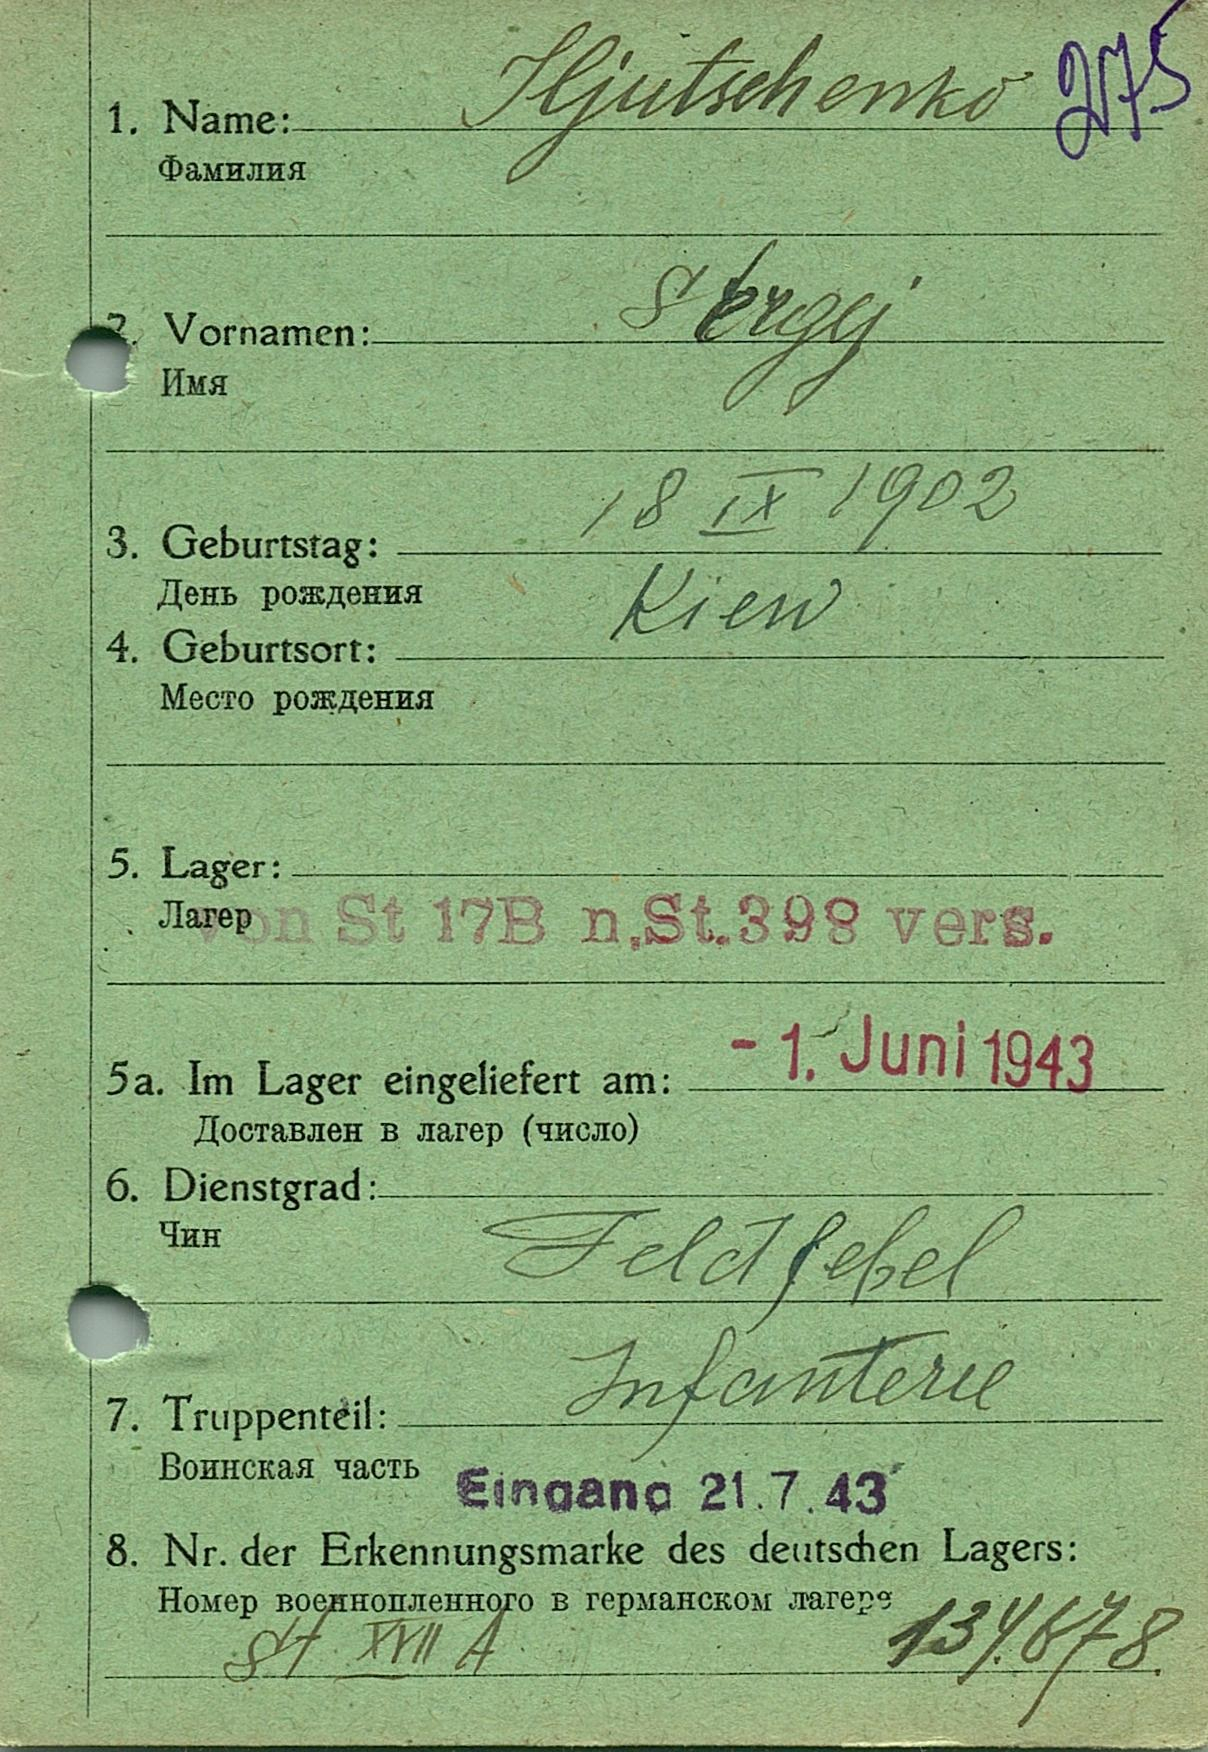 275
1. Name: Iljutschenko
Фамилия
2. Vornamen: Sergej
Имя
3. Geburtstag: 18 IX 1902
День рождения
Kiew
4. Geburtsort:
Место рождения
5. Lager:
Лагер
von St 17B n.St.398 vers.
5a. Im Lager eingeliefert am: - 1. Juni 1943
Доставлен в лагер (число)
6. Dienstgrad:
Чин
Feldfebel
Infanterie
7. Truppenteil:
Воинская часть
Eingang 21.7.43
8. Nr. der Erkennungsmarke des deutschen Lagers:
Номер военнопленного в германском лагере
St XVII A 134678.